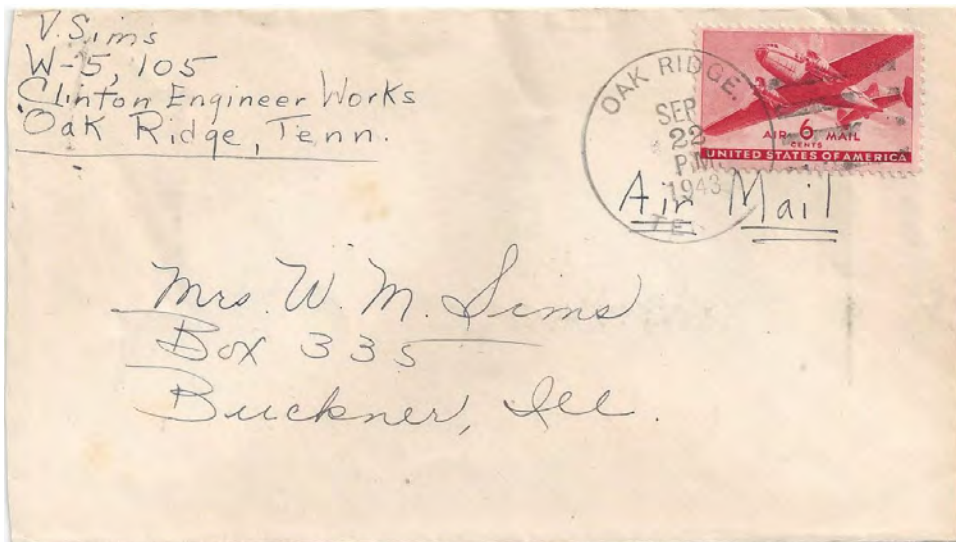 V. Sims
W-5, 105
Clinton Engineer Works
Oak Ridge, Tenn.
OAK RIDGE.
SEP
22
PM
1943
TE
AIR 6 MAIL
CENTS
UNITED STATES OF AMERICA
Air Mail
Mrs. W. M. Sims
Box 335
Buckner, Ill.